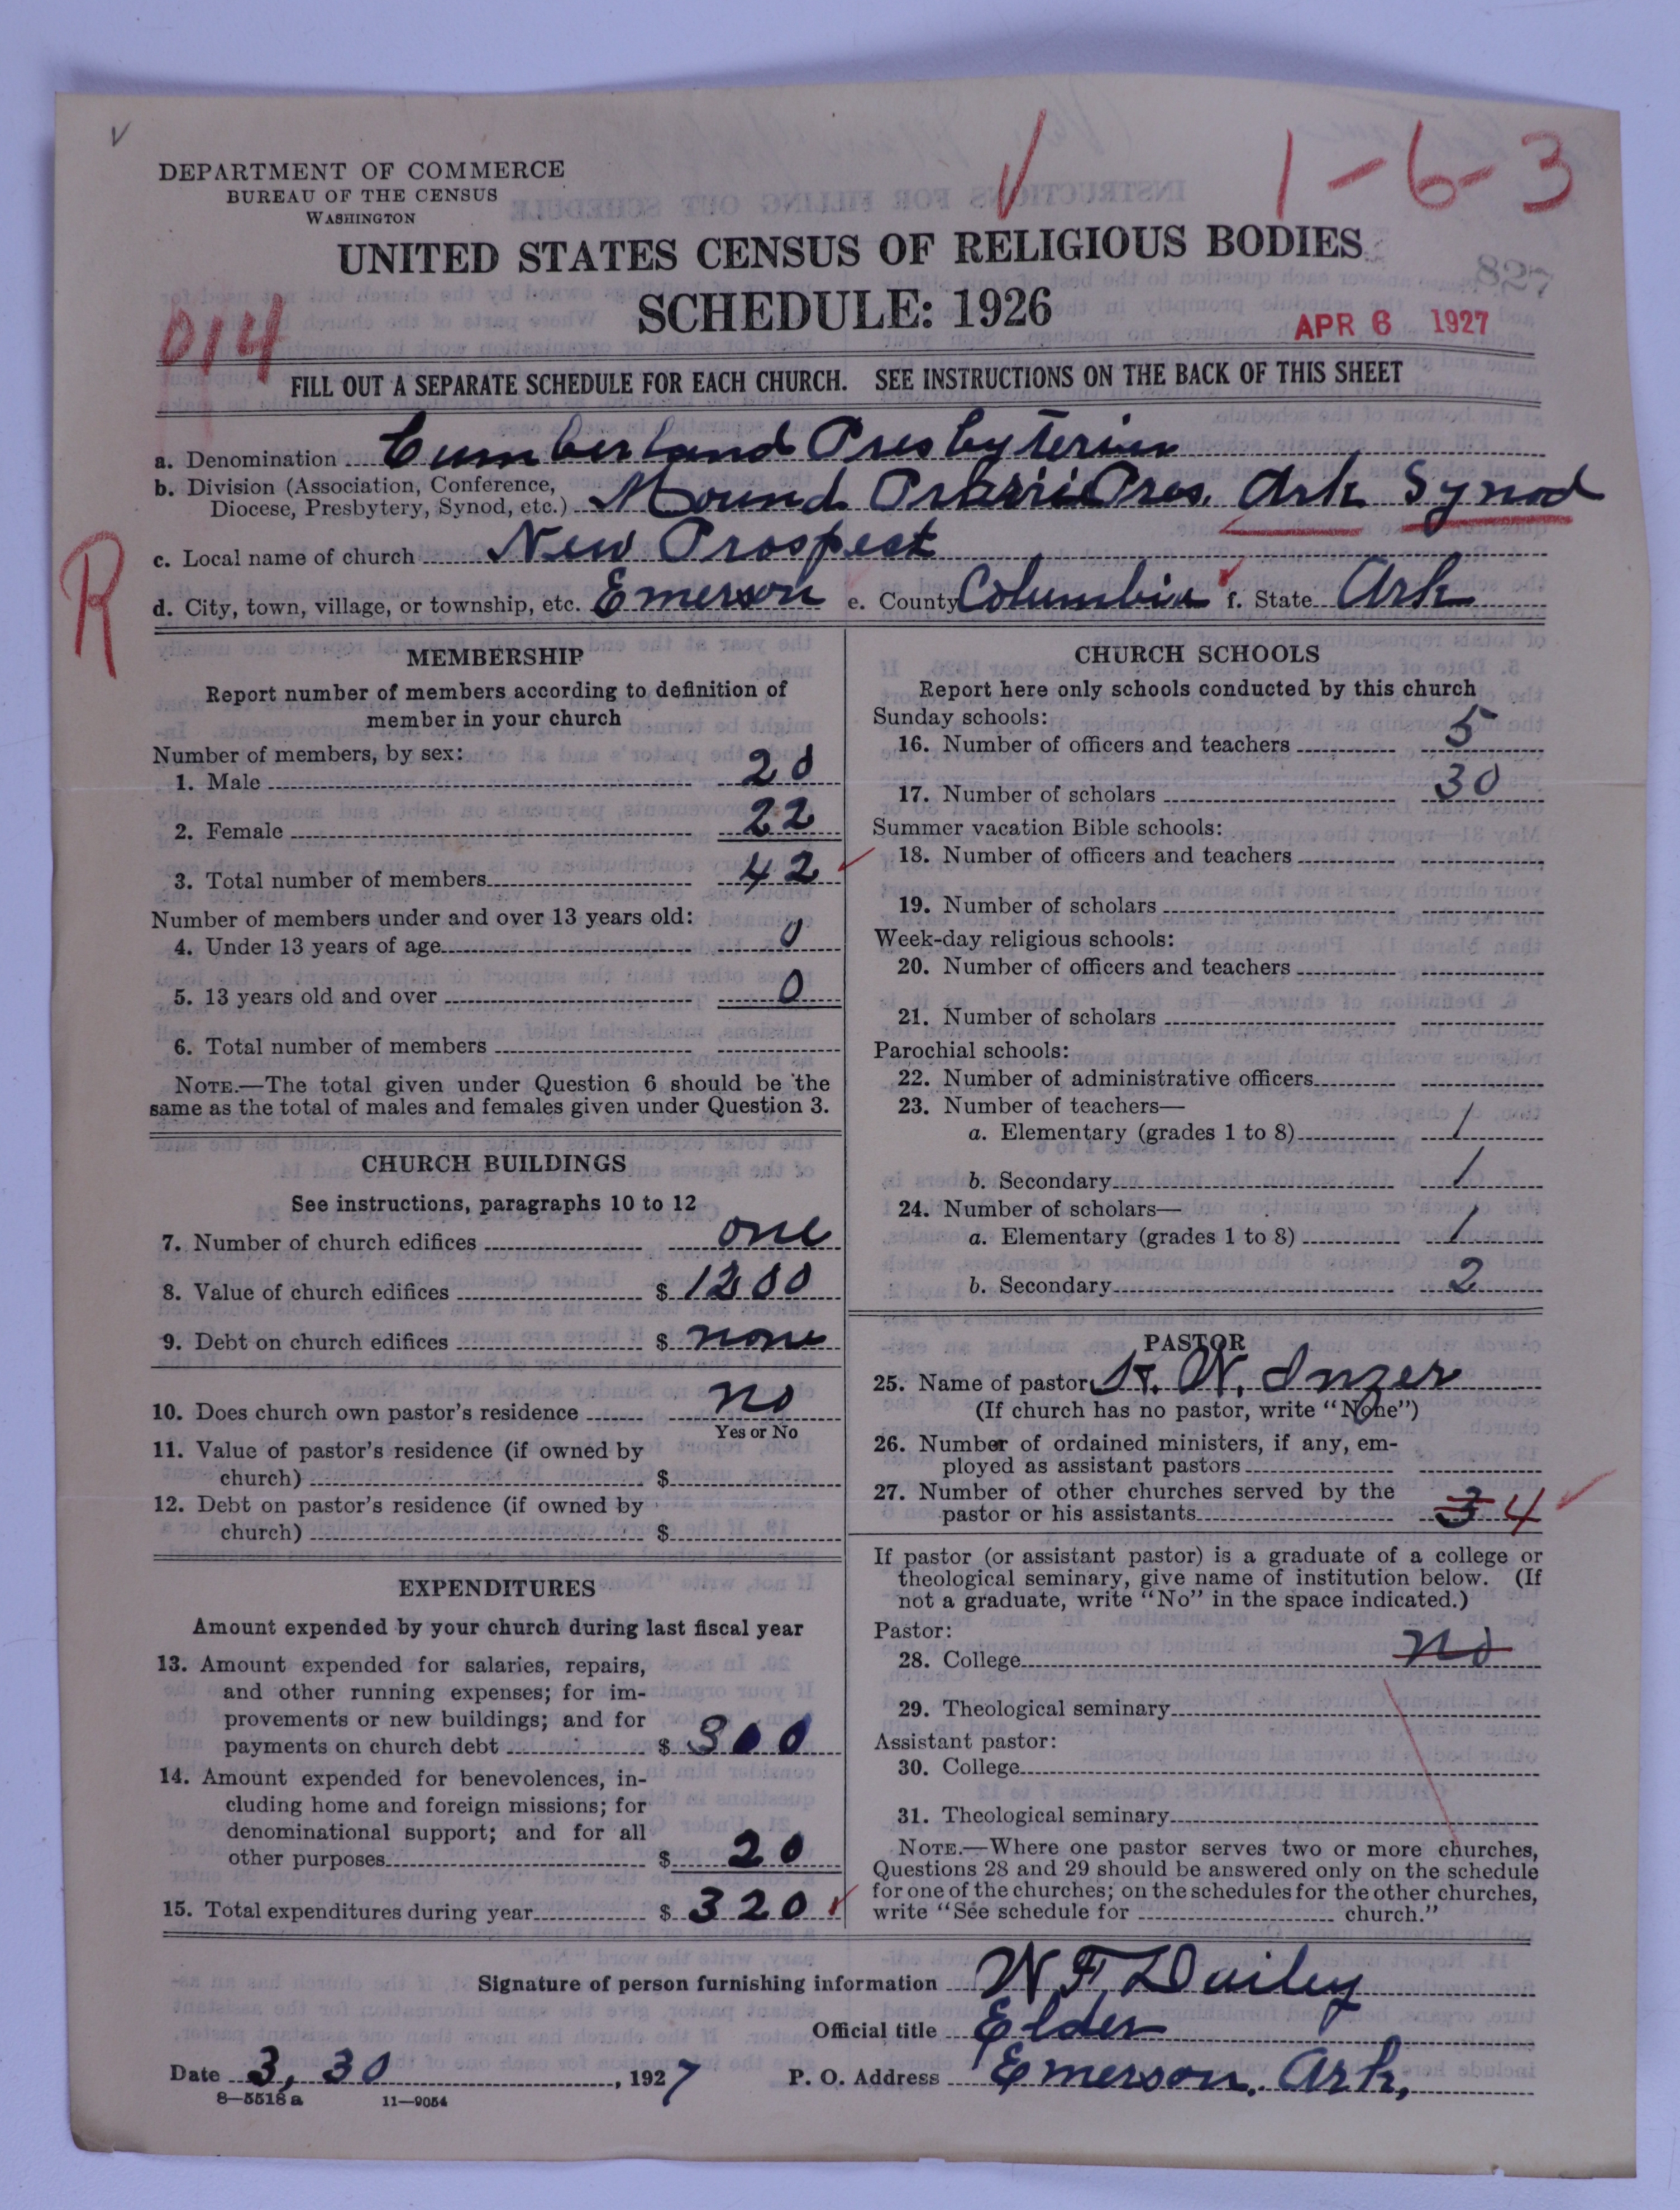 DEPARTMENT OF COMMERCE
BUREAU OF THE CENSUS
WASHINGTON
1-6-3
UNITED STATES CENSUS OF RELIGIOUS BODIES
827
SCHEDULE: 1926
APR 6 1927
014
FILL OUT A SEPARATE SCHEDULE FOR EACH CHURCH. SEE INSTRUCTIONS ON THE BACK OF THIS SHEET
a. Denomination Cumberland Presbyterian
b. Division (Association, Conference, Diocese, Presbytery, Synod, etc.) Mound Prarri Pres. Ark Synod
c. Local name of church New Prospect
R
d. City, town, village, or township, etc. Emerson e. County Columbia f. State Ark
MEMBERSHIP
Report number of members according to definition of
member in your church
Number of members, by sex:
1. Male 20
2. Female 22
3. Total number of members 42
Number of members under and over 13 years old:
4. Under 13 years of age 0
5. 13 years old and over 0
6. Total number of members
NOTE.—The total given under Question 6 should be the
same as the total of males and females given under Question 3.
CHURCH BUILDINGS
See instructions, paragraphs 10 to 12
7. Number of church edifices one
8. Value of church edifices $ 1200
9. Debt on church edifices $ none
10. Does church own pastor's residence no
Yes or No
11. Value of pastor's residence (if owned by
church) $
12. Debt on pastor's residence (if owned by
church) $
EXPENDITURES
Amount expended by your church during last fiscal year
13. Amount expended for salaries, repairs,
and other running expenses; for im-
provements or new buildings; and for
payments on church debt $ 300
14. Amount expended for benevolences, in-
cluding home and foreign missions; for
denominational support; and for all
other purposes $ 20
15. Total expenditures during year $ 320
CHURCH SCHOOLS
Report here only schools conducted by this church
Sunday schools:
16. Number of officers and teachers 5
17. Number of scholars 30
Summer vacation Bible schools:
18. Number of officers and teachers
19. Number of scholars
Week-day religious schools:
20. Number of officers and teachers
21. Number of scholars
Parochial schools:
22. Number of administrative officers
23. Number of teachers—
a. Elementary (grades 1 to 8) 1
b. Secondary 1
24. Number of scholars—
a. Elementary (grades 1 to 8) 1
b. Secondary 2
PASTOR
25. Name of pastor W. Inzer
(If church has no pastor, write "None")
26. Number of ordained ministers, if any, em-
ployed as assistant pastors
27. Number of other churches served by the
pastor or his assistants 3 4
If pastor (or assistant pastor) is a graduate of a college or
theological seminary, give name of institution below. (If
not a graduate, write "No" in the space indicated.)
Pastor:
28. College no
29. Theological seminary
Assistant pastor:
30. College
31. Theological seminary
NOTE.—Where one pastor serves two or more churches,
Questions 28 and 29 should be answered only on the schedule
for one of the churches; on the schedules for the other churches,
write "See schedule for church."
Signature of person furnishing information W. F. Dailey
Official title Elder
Date 3, 30, 1927 P. O. Address Emerson, Ark,
8-5518a 11-9054